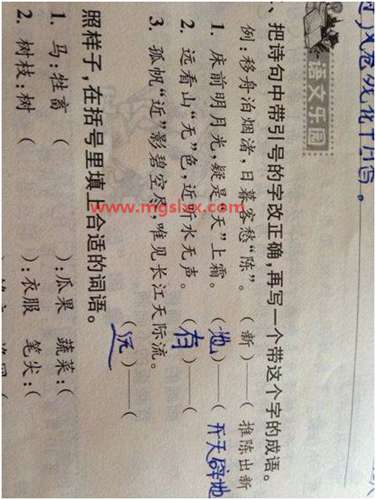 语文乐园
、把诗句中带引号的字改正确,再写一个带这个字的成语。
例:移舟泊烟渚,日暮客愁“陈”。(新)—( 推陈出新
1. 床前明月光,疑是“天”上霜。(地)—( 开天辟地
2. 远看山“无”色,近听水无声。(有)—(
3. 孤帆“近”影碧空尽,唯见长江天际流。(远)—(
照样子,在括号里填上合适的词语。
1. 马:牲畜 ( ):瓜果 蔬菜:(
2. 树枝:树 ( ):衣服 笔尖:(
www.mgslxx.com